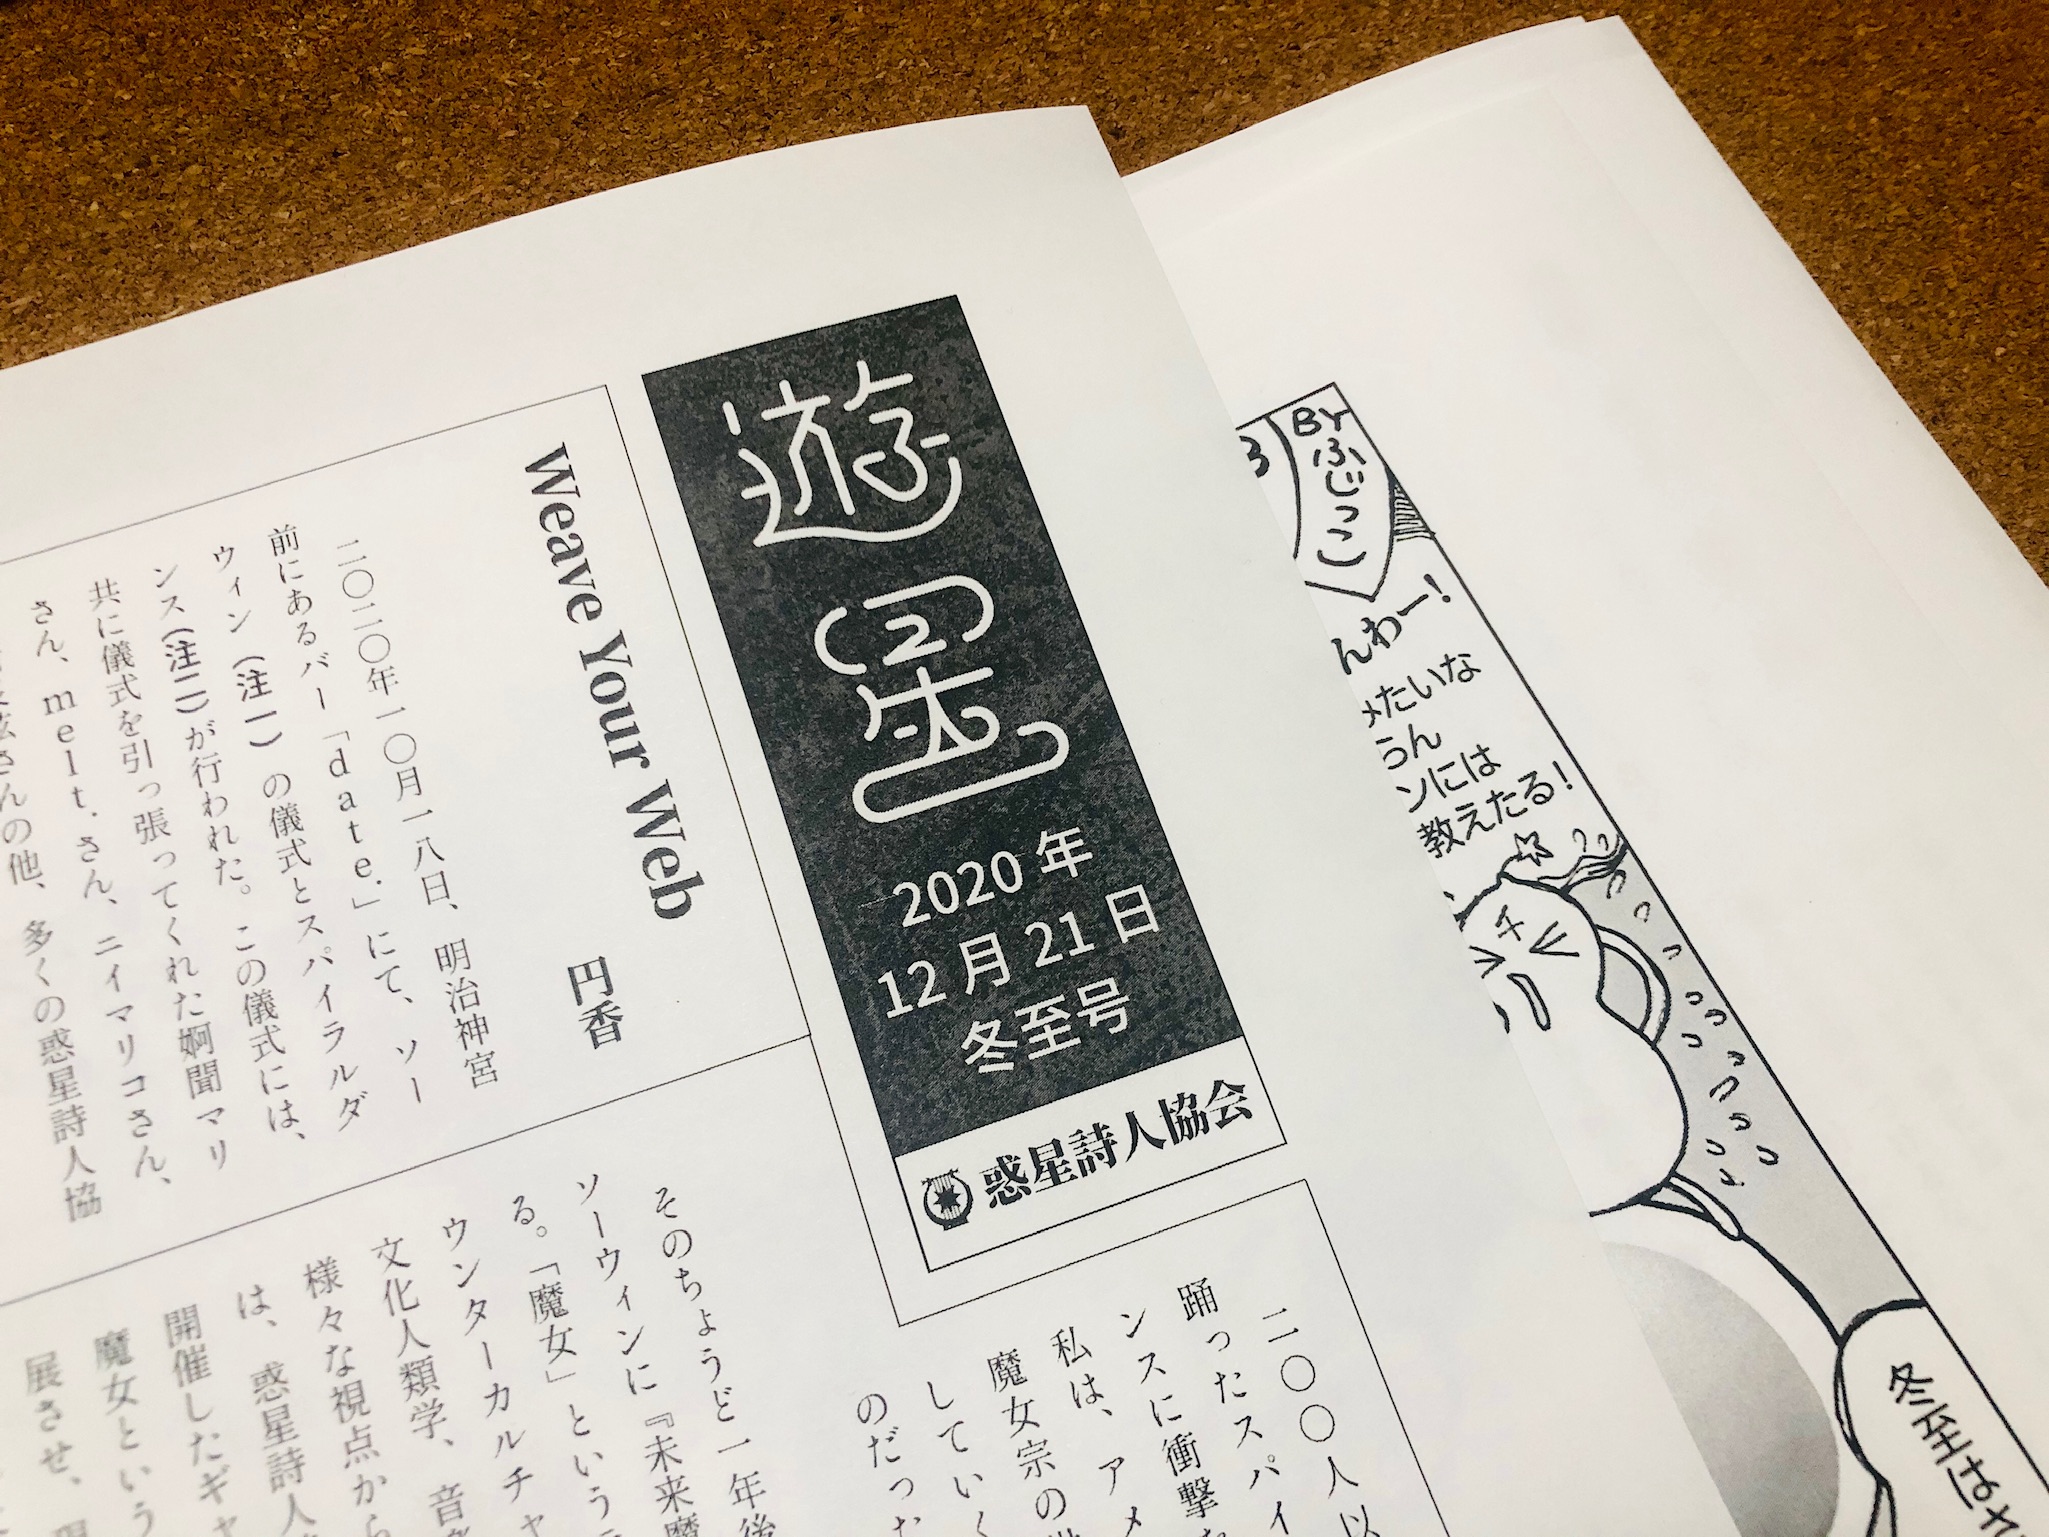 遊星
2020年
12月21日
冬至号
惑星詩人協会
Weave Your Web
円香
二〇二〇年一〇月一八日、明治神宮
前にあるバー「date.」にて、ソー
ウィン(注一)の儀式とスパイラルダ
ンス(注二)が行われた。この儀式には、
共に儀式を引っ張ってくれた婀聞マリ
さん、melt.さん、ニイマリコさん、
さんの他、多くの惑星詩人協
二〇〇人以
踊ったスパイ
ンスに衝撃
私は、アメ
魔女宗の
していく
のだった
そのちょうど一年後
ソーウィンに『未来魔
る。「魔女」という
ウンターカルチャ
文化人類学、音
様々な視点から
は、惑星詩人
開催したギャ
魔女という
展させ、
BYふじっこ
んわー!
みたいな
らん
ンには
教えたる!
冬至はさ